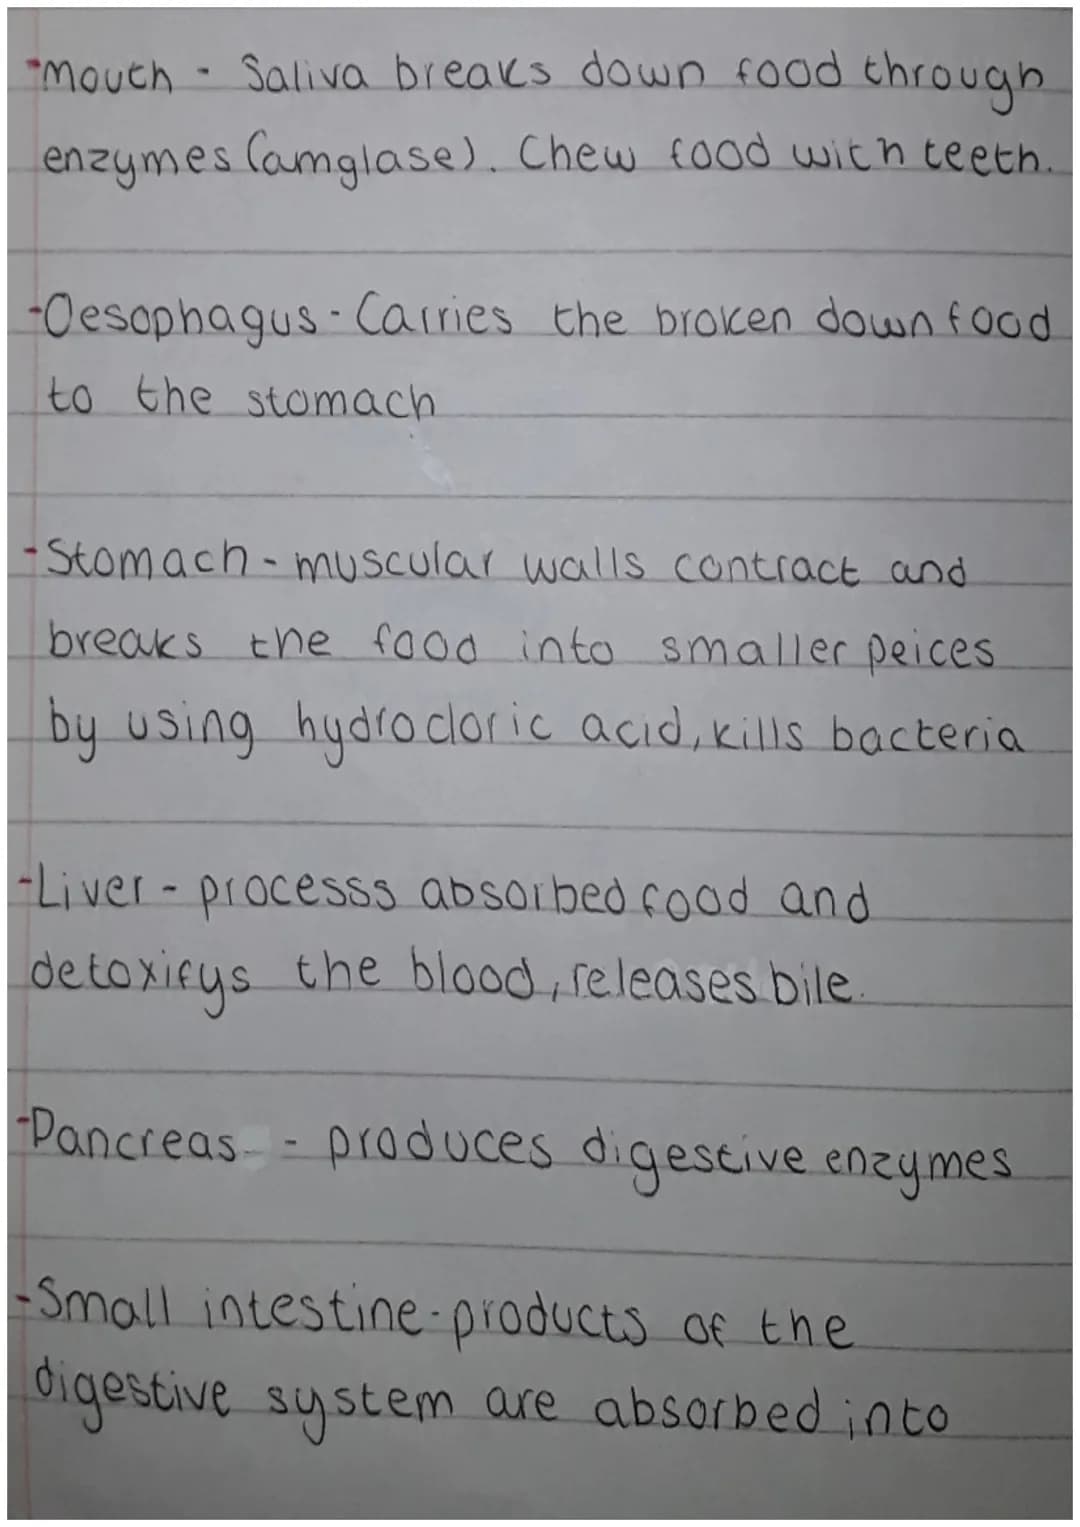 -Mouth - Saliva breaks down food through
enzymes (amglase). Chew food with teeth.
-Oesophagus - Carries the broken down food
to the stomach
-Stomach - muscular walls contract and
breaks the food into smaller peices
by using hydrocloric acid, kills bacteria
-Liver - processs absorbed food and
detoxifys the blood, releases bile.
-Pancreas - produces digestive enzymes
-Small intestine - products of the
digestive system are absorbed into